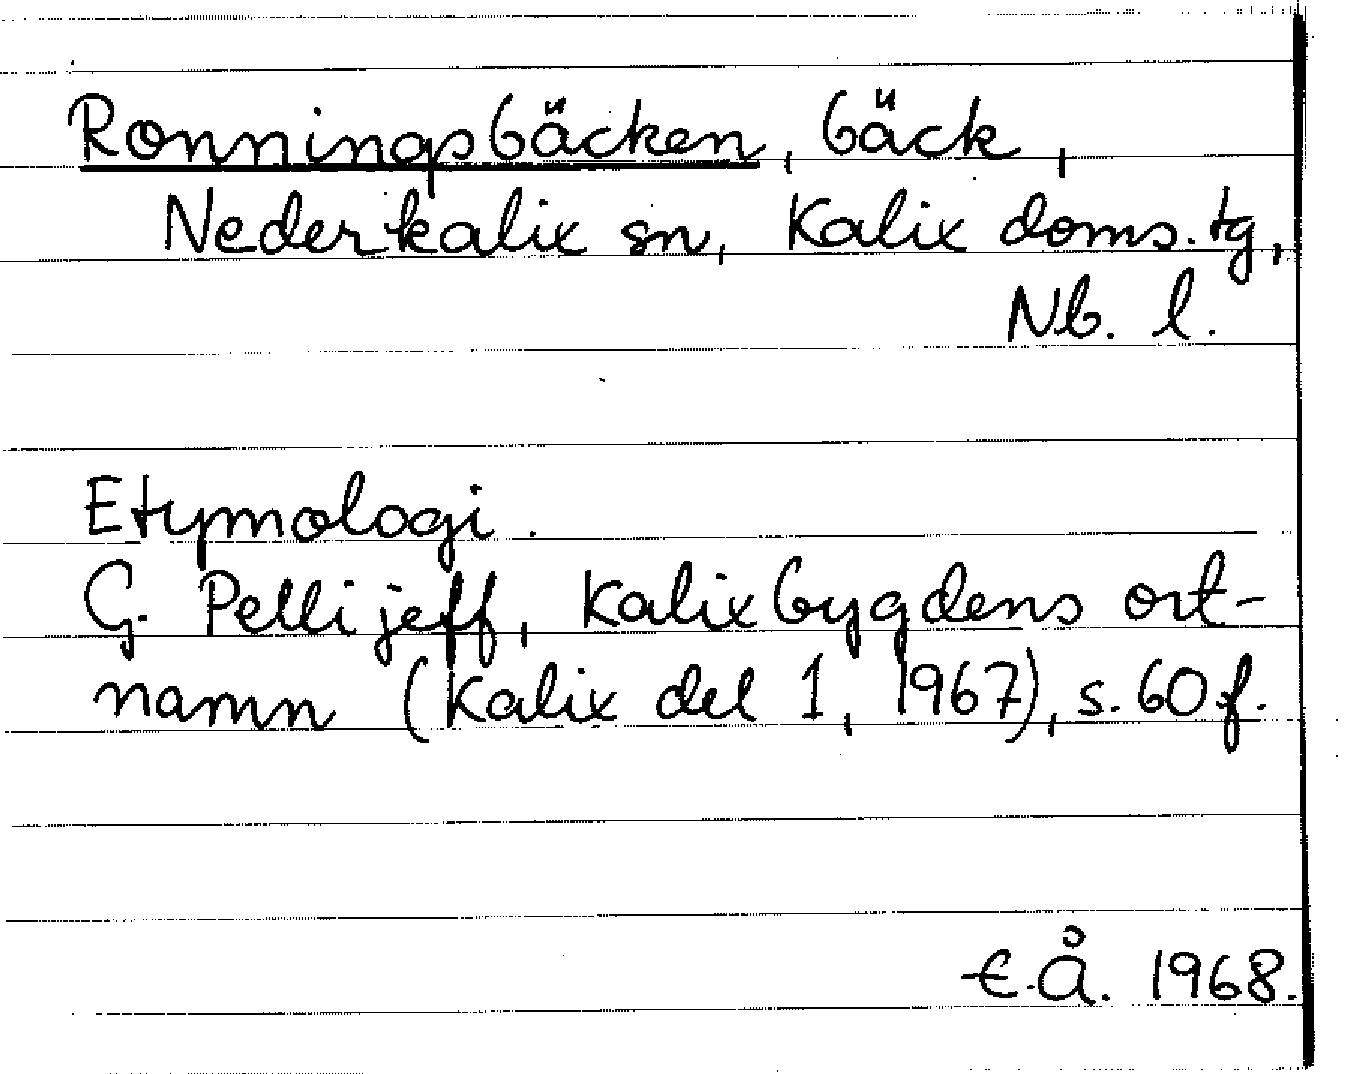 Ronningsbäcken, bäck,
Nederkalix sn, Kalix doms.tg,
Nb. l.
Etymologi.
G. Pellijeff, Kalixbygdens ort-
namn (Kalix del 1, 1967), s. 60 f.
E.Å. 1968.